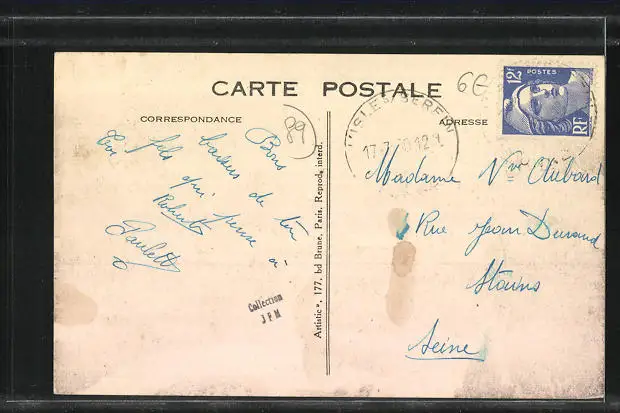 CARTE POSTALE
CORRESPONDANCE
ADRESSE
89
6G
12F
POSTES
RF
L'ISLE S/ SEREIN
17-7 12
Bons
baisers de ton
fils qui pense à
toi
Robert
Paulette
Collection
JFM
Artistic », 177, bd Brune, Paris. Reprod. interd.
Madame Vve
Rue Jean Durand
Stains
Seine